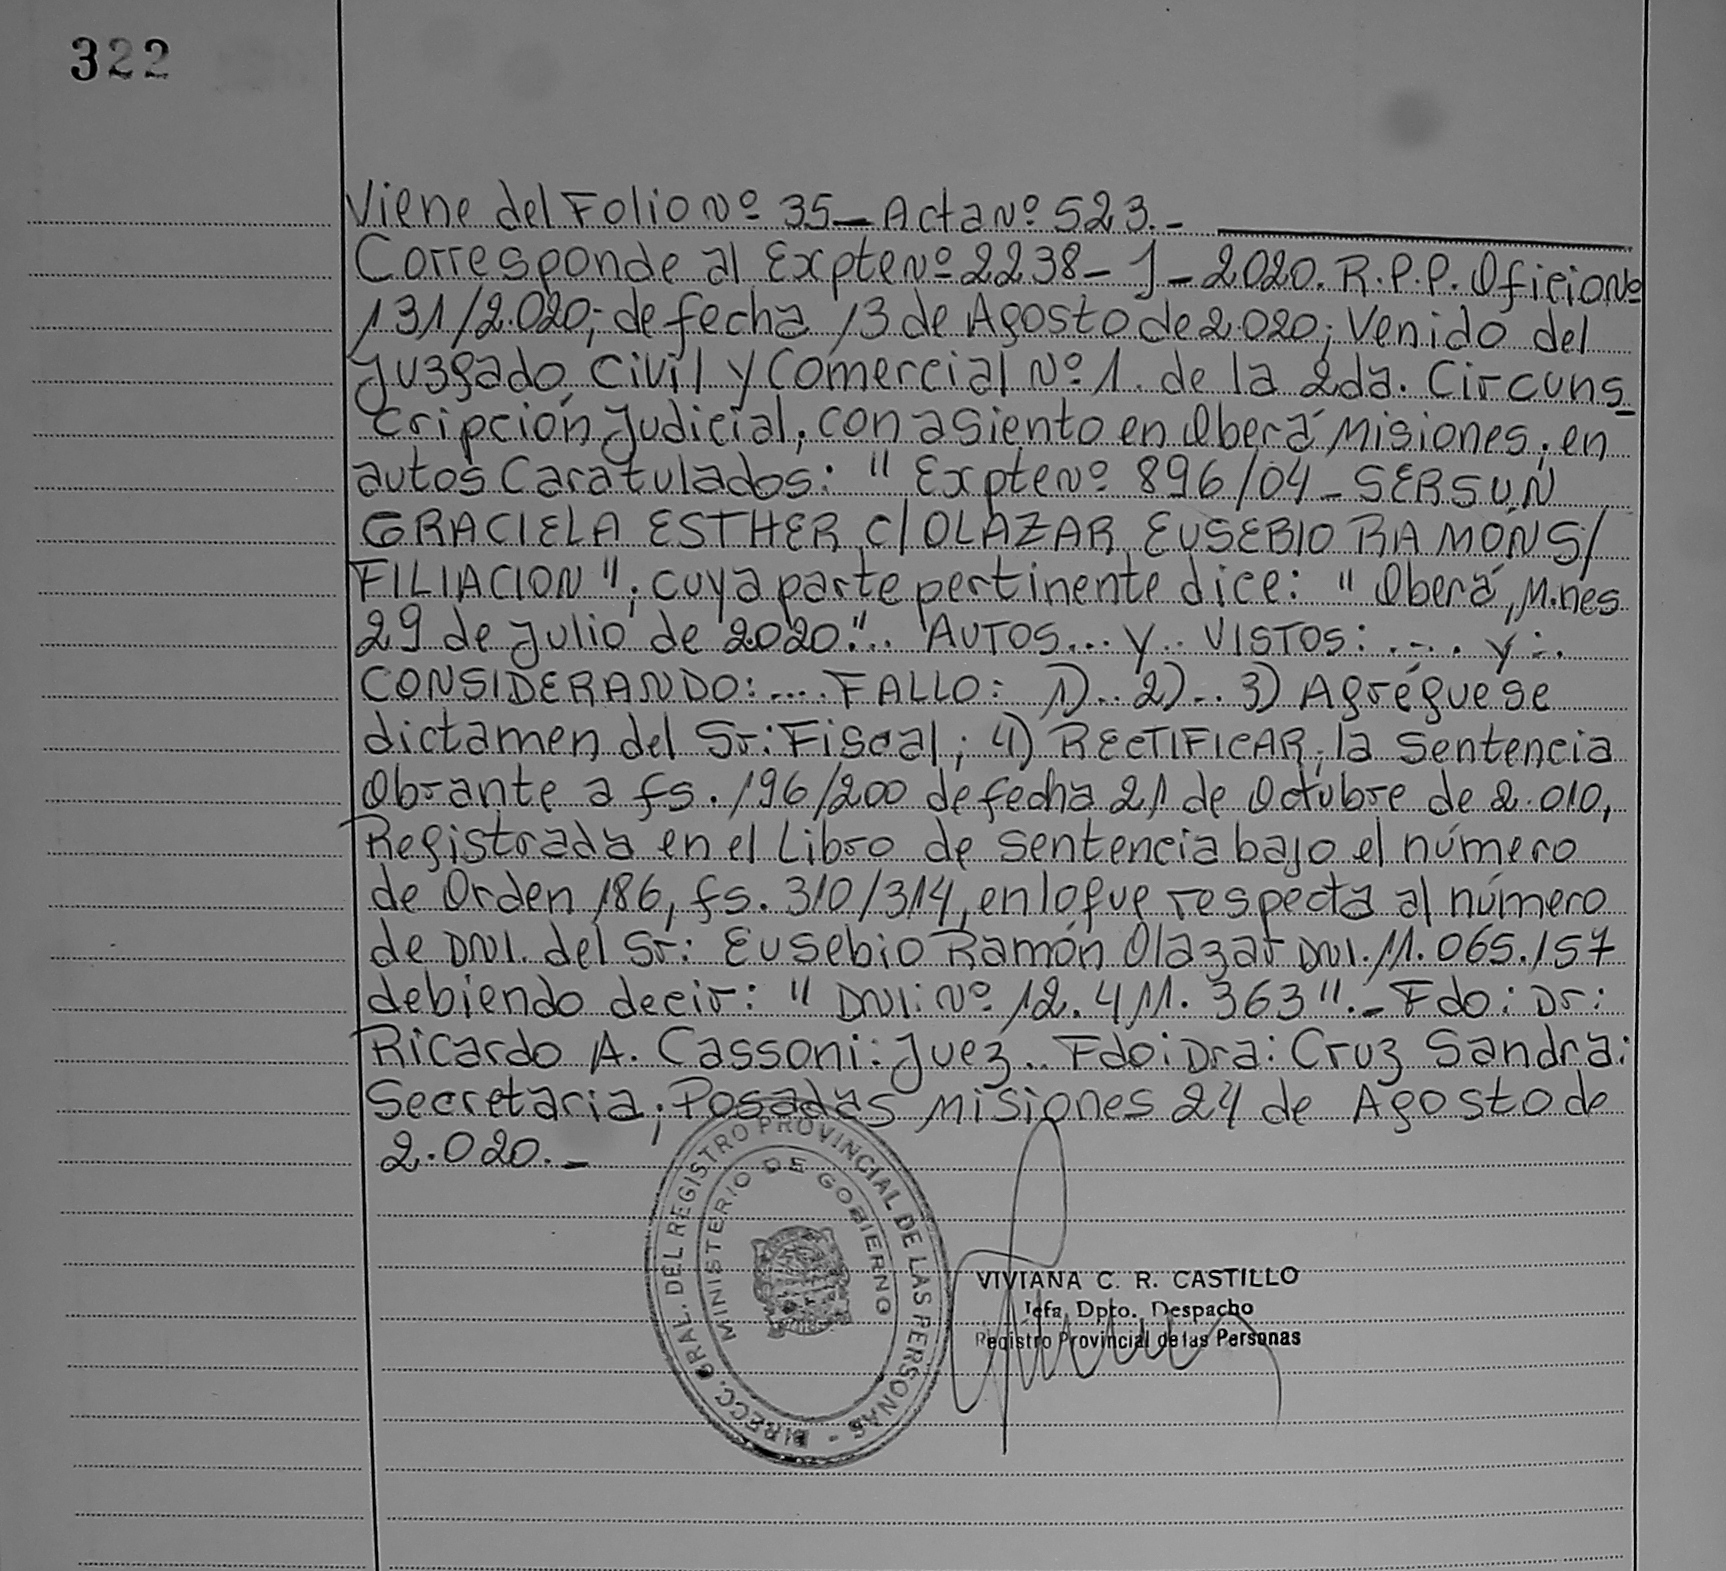 322
Viene del Folio Nº 35 - Acta Nº 523.-
Corresponde al Expte Nº 2238 - J - 2020. R.P.P. Oficio Nº
131/2.020; de fecha 13 de Agosto de 2.020; Venido del
Juzgado Civil y Comercial Nº 1. de la 2da. Circuns_
cripción Judicial, con asiento en Oberá Misiones; en
autos Caratulados: "Expte Nº 896/04 - SERSUN
GRACIELA ESTHER C/ OLAZAR EUSEBIO RAMÓN S/
FILIACION"; cuya parte pertinente dice: "Oberá, M.nes
29 de Julio de 2020"... AUTOS... y... VISTOS: .... y :.
CONSIDERANDO: .... FALLO: 1)... 2)... 3) Agréguese
dictamen del Sr: Fiscal; 4) RECTIFICAR; la Sentencia
Obrante a fs. 196/200 de fecha 21 de Octubre de 2.010,
Registrada en el Libro de Sentencia bajo el número
de Orden 186, fs. 310/314, en lo que respecta al número
de DNI. del Sr: Eusebio Ramón Olazar DNI. 11.065.157
debiendo decir: "DNI: Nº 12.411.363".- Fdo: Dr:
Ricardo A. Cassoni: Juez. Fdo: Dra: Cruz Sandra:
Secretaria; Posadas Misiones 24 de Agosto de
2.020.-
DIRECC. GRAL. DEL REGISTRO PROVINCIAL DE LAS PERSONAS -
MINISTERIO DE GOBIERNO
VIVIANA C. R. CASTILLO
Jefa Dpto. Despacho
Registro Provincial de las Personas